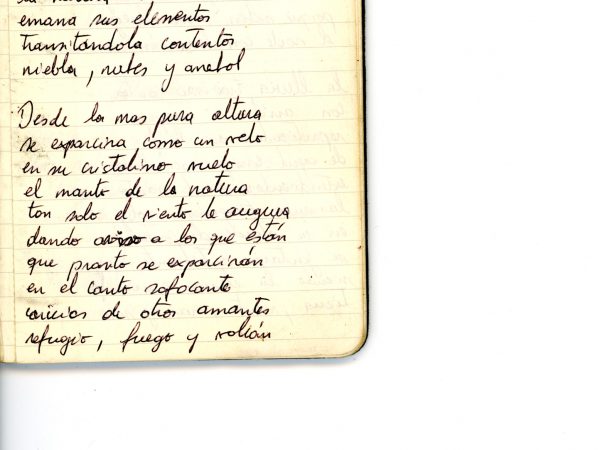 emana sus elementos
transitándola contentos
niebla, nubes y arrebol
Desde la mas pura altura
se exparcira, como un velo
en su cristalino vuelo
el manto de la natura
tan solo el viento le augura
dando aviso a los que están
que pronto se exparcirán
en el canto sofocante
caricias de otros amantes
refugio, fuego y volcán